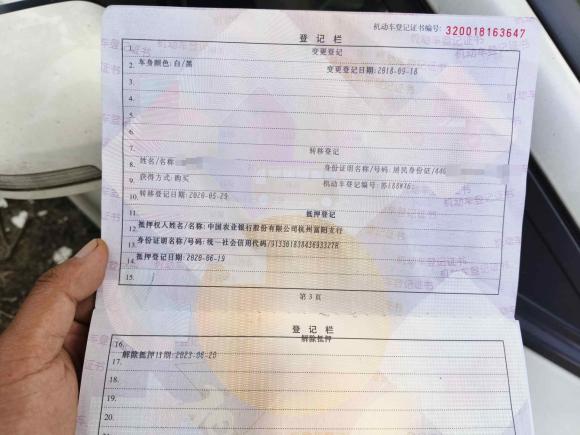 机动车登记证书编号: 320018163647
登记栏
1. 变更登记
2. 车身颜色:白/黑 变更登记日期:2018-09-18
3.
4.
5.
6.
7. 转移登记
8. 姓名/名称 身份证明名称/号码:居民身份证/446
9. 获得方式:购买 机动车登记编号:苏
10. 转移登记日期:2020-05-29
11. 抵押登记
12. 抵押权人姓名/名称:中国农业银行股份有限公司杭州富阳支行
13. 身份证明名称/号码:统一社会信用代码/
14. 抵押登记日期:2020-06-19
15.
第3页
登记栏
16. 解除抵押
17. 解除抵押日期:2023-06-20
18.
19.
20.